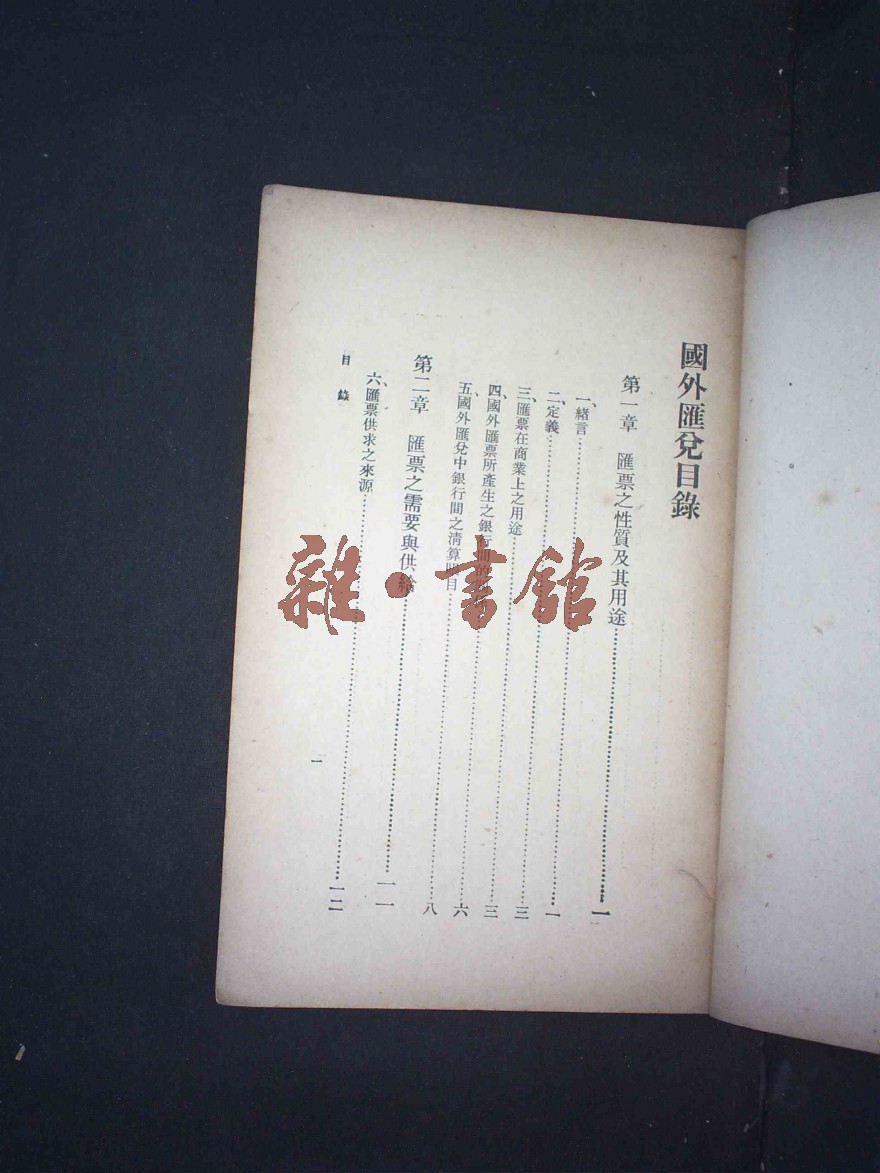 國外匯兌目錄
第一章 匯票之性質及其用途……一
一、緒言……一
二、定義……三
三、匯票在商業上之用途……三
四、國外匯票所產生之銀行間的……六
五、國外匯兌中銀行間之清算目……八
第二章 匯票之需要與供給……一一
六、匯票供求之來源……一二
目錄
一
雜·書館